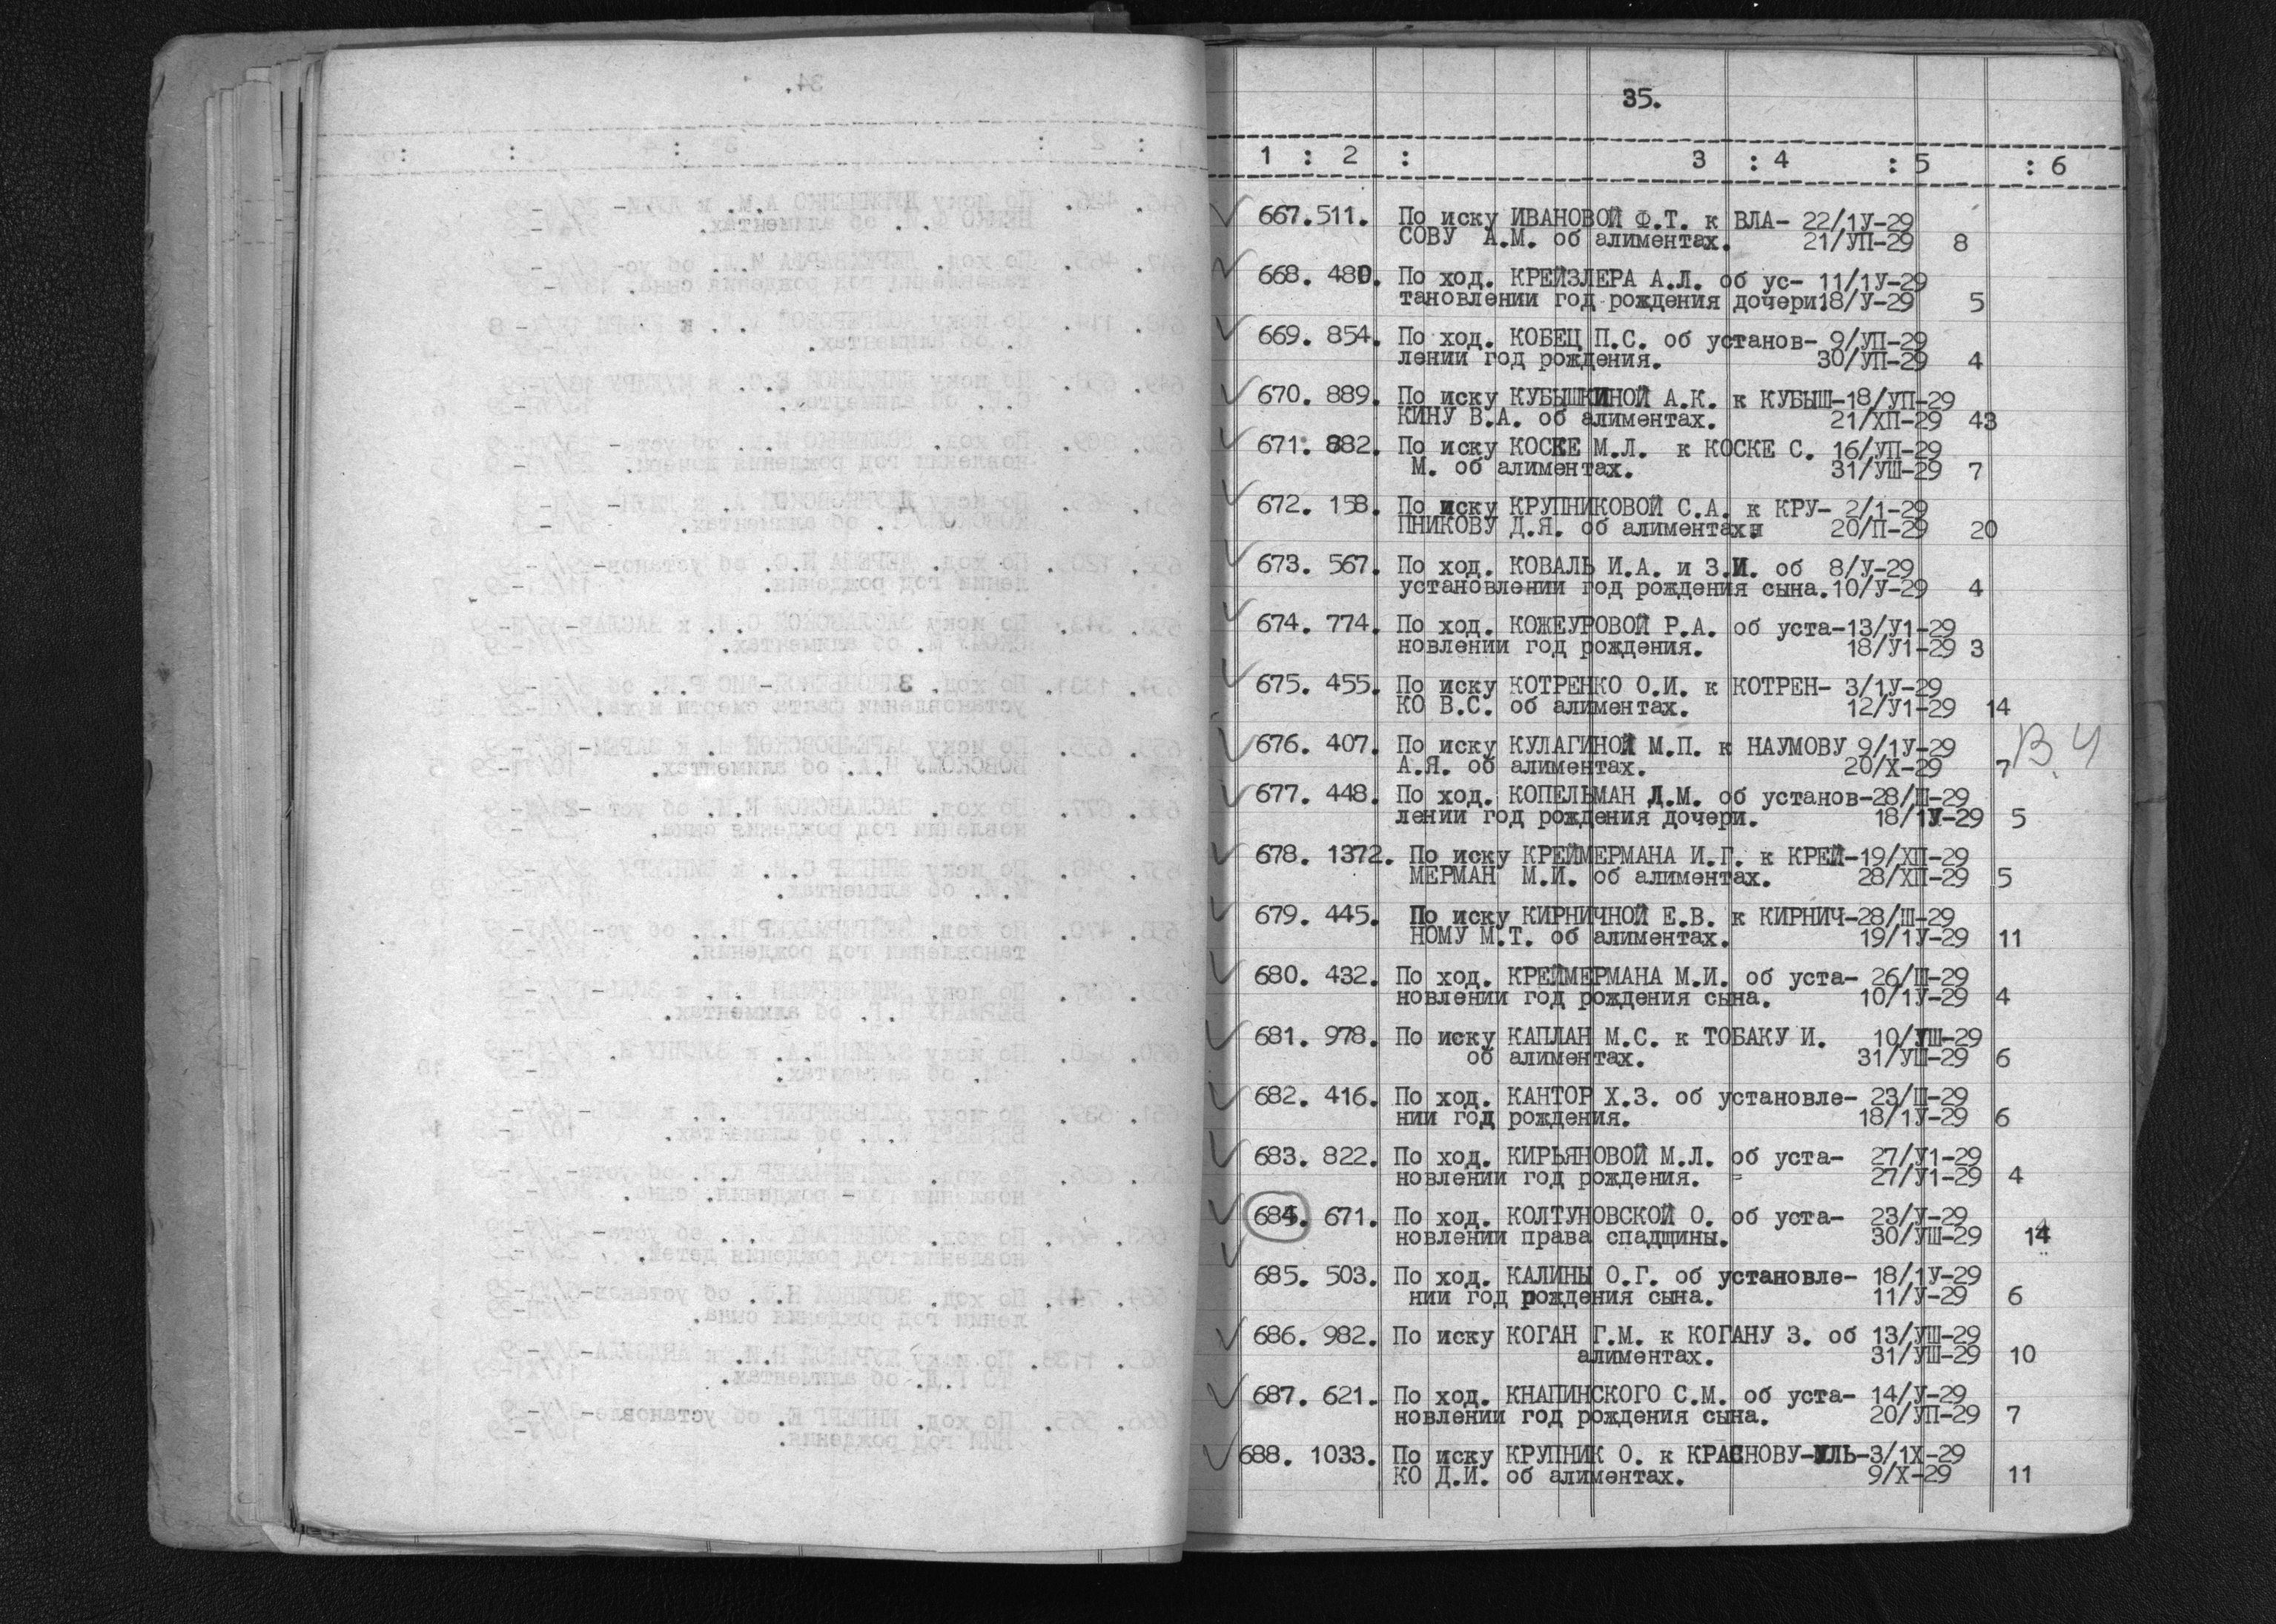 35.
1 : 2 : 3 : 4 : 5 : 6
667.511. По иску ИВАНОВОЙ Ф.Т. к ВЛА- 22/1У-29
СОВУ А.М. об алиментах. 21/УП-29 8
668. 480. По ход. КРЕЙЗЛЕРА А.Л. об ус- 11/1У-29
тановлении год рождения дочери.18/У-29 5
669. 854. По ход. КОБЕЦ П.С. об установ- 9/УП-29
лении год рождения. 30/УП-29 4
670. 889. По иску КУБЫШКИНОЙ А.К. к КУБЫШ-18/УП-29
КИНУ В.А. об алиментах. 21/ХП-29 43
671. 882. По иску КОСКЕ М.Л. к КОСКЕ С. 16/УП-29
М. об алиментах. 31/УШ-29 7
672. 158. По иску КРУПНИКОВОЙ С.А. к КРУ- 2/1-29
ПНИКОВУ Д.Я. об алиментах. 20/П-29 20
673. 567. По ход. КОВАЛЬ И.А. и З.И. об 8/У-29
установлении год рождения сына.10/У-29 4
674. 774. По ход. КОЖЕУРОВОЙ Р.А. об уста-13/У1-29
новлении год рождения. 18/У1-29 3
675. 455. По иску КОТРЕНКО О.И. к КОТРЕН- 3/1У-29
КО В.С. об алиментах. 12/У1-29 14
676. 407. По иску КУЛАГИНОЙ М.П. к НАУМОВУ 9/1У-29
А.Я. об алиментах. 20/Х-29 7 В.Ч
677. 448. По ход. КОПЕЛЬМАН Д.М. об установ-28/Ш-29
лении год рождения дочери. 18/1У-29 5
678. 1372. По иску КРЕЙМЕРМАНА И.Г. к КРЕЙ-19/ХП-29
МЕРМАН М.И. об алиментах. 28/ХП-29 5
679. 445. По иску КИРНИЧНОЙ Е.В. к КИРНИЧ-28/Ш-29
НОМУ М.Т. об алиментах. 19/1У-29 11
680. 432. По ход. КРЕЙМЕРМАНА М.И. об уста- 26/Ш-29
новлении год рождения сына. 10/1У-29 4
681. 978. По иску КАПЛАН М.С. к ТОБАКУ И. 10/УШ-29
об алиментах. 31/УШ-29 6
682. 416. По ход. КАНТОР Х.З. об установле- 23/Ш-29
нии год рождения. 18/1У-29 6
683. 822. По ход. КИРЬЯНОВОЙ М.Л. об уста- 27/У1-29
новлении год рождения. 27/У1-29 4
684. 671. По ход. КОЛТУНОВСКОЙ О. об уста- 23/У-29
новлении права спадщины. 30/УШ-29 14
685. 503. По ход. КАЛИНЫ О.Г. об установле- 18/1У-29
нии год рождения сына. 11/У-29 6
686. 982. По иску КОГАН Г.М. к КОГАНУ З. об 13/УШ-29
алиментах. 31/УШ-29 10
687. 621. По ход. КНАПИНСКОГО С.М. об уста- 14/У-29
новлении год рождения сына. 20/УП-29 7
688. 1033. По иску КРУПНИК О. к КРАСНОВУ-ИЛЬ-3/1Х-29
КО Д.И. об алиментах. 9/Х-29 11